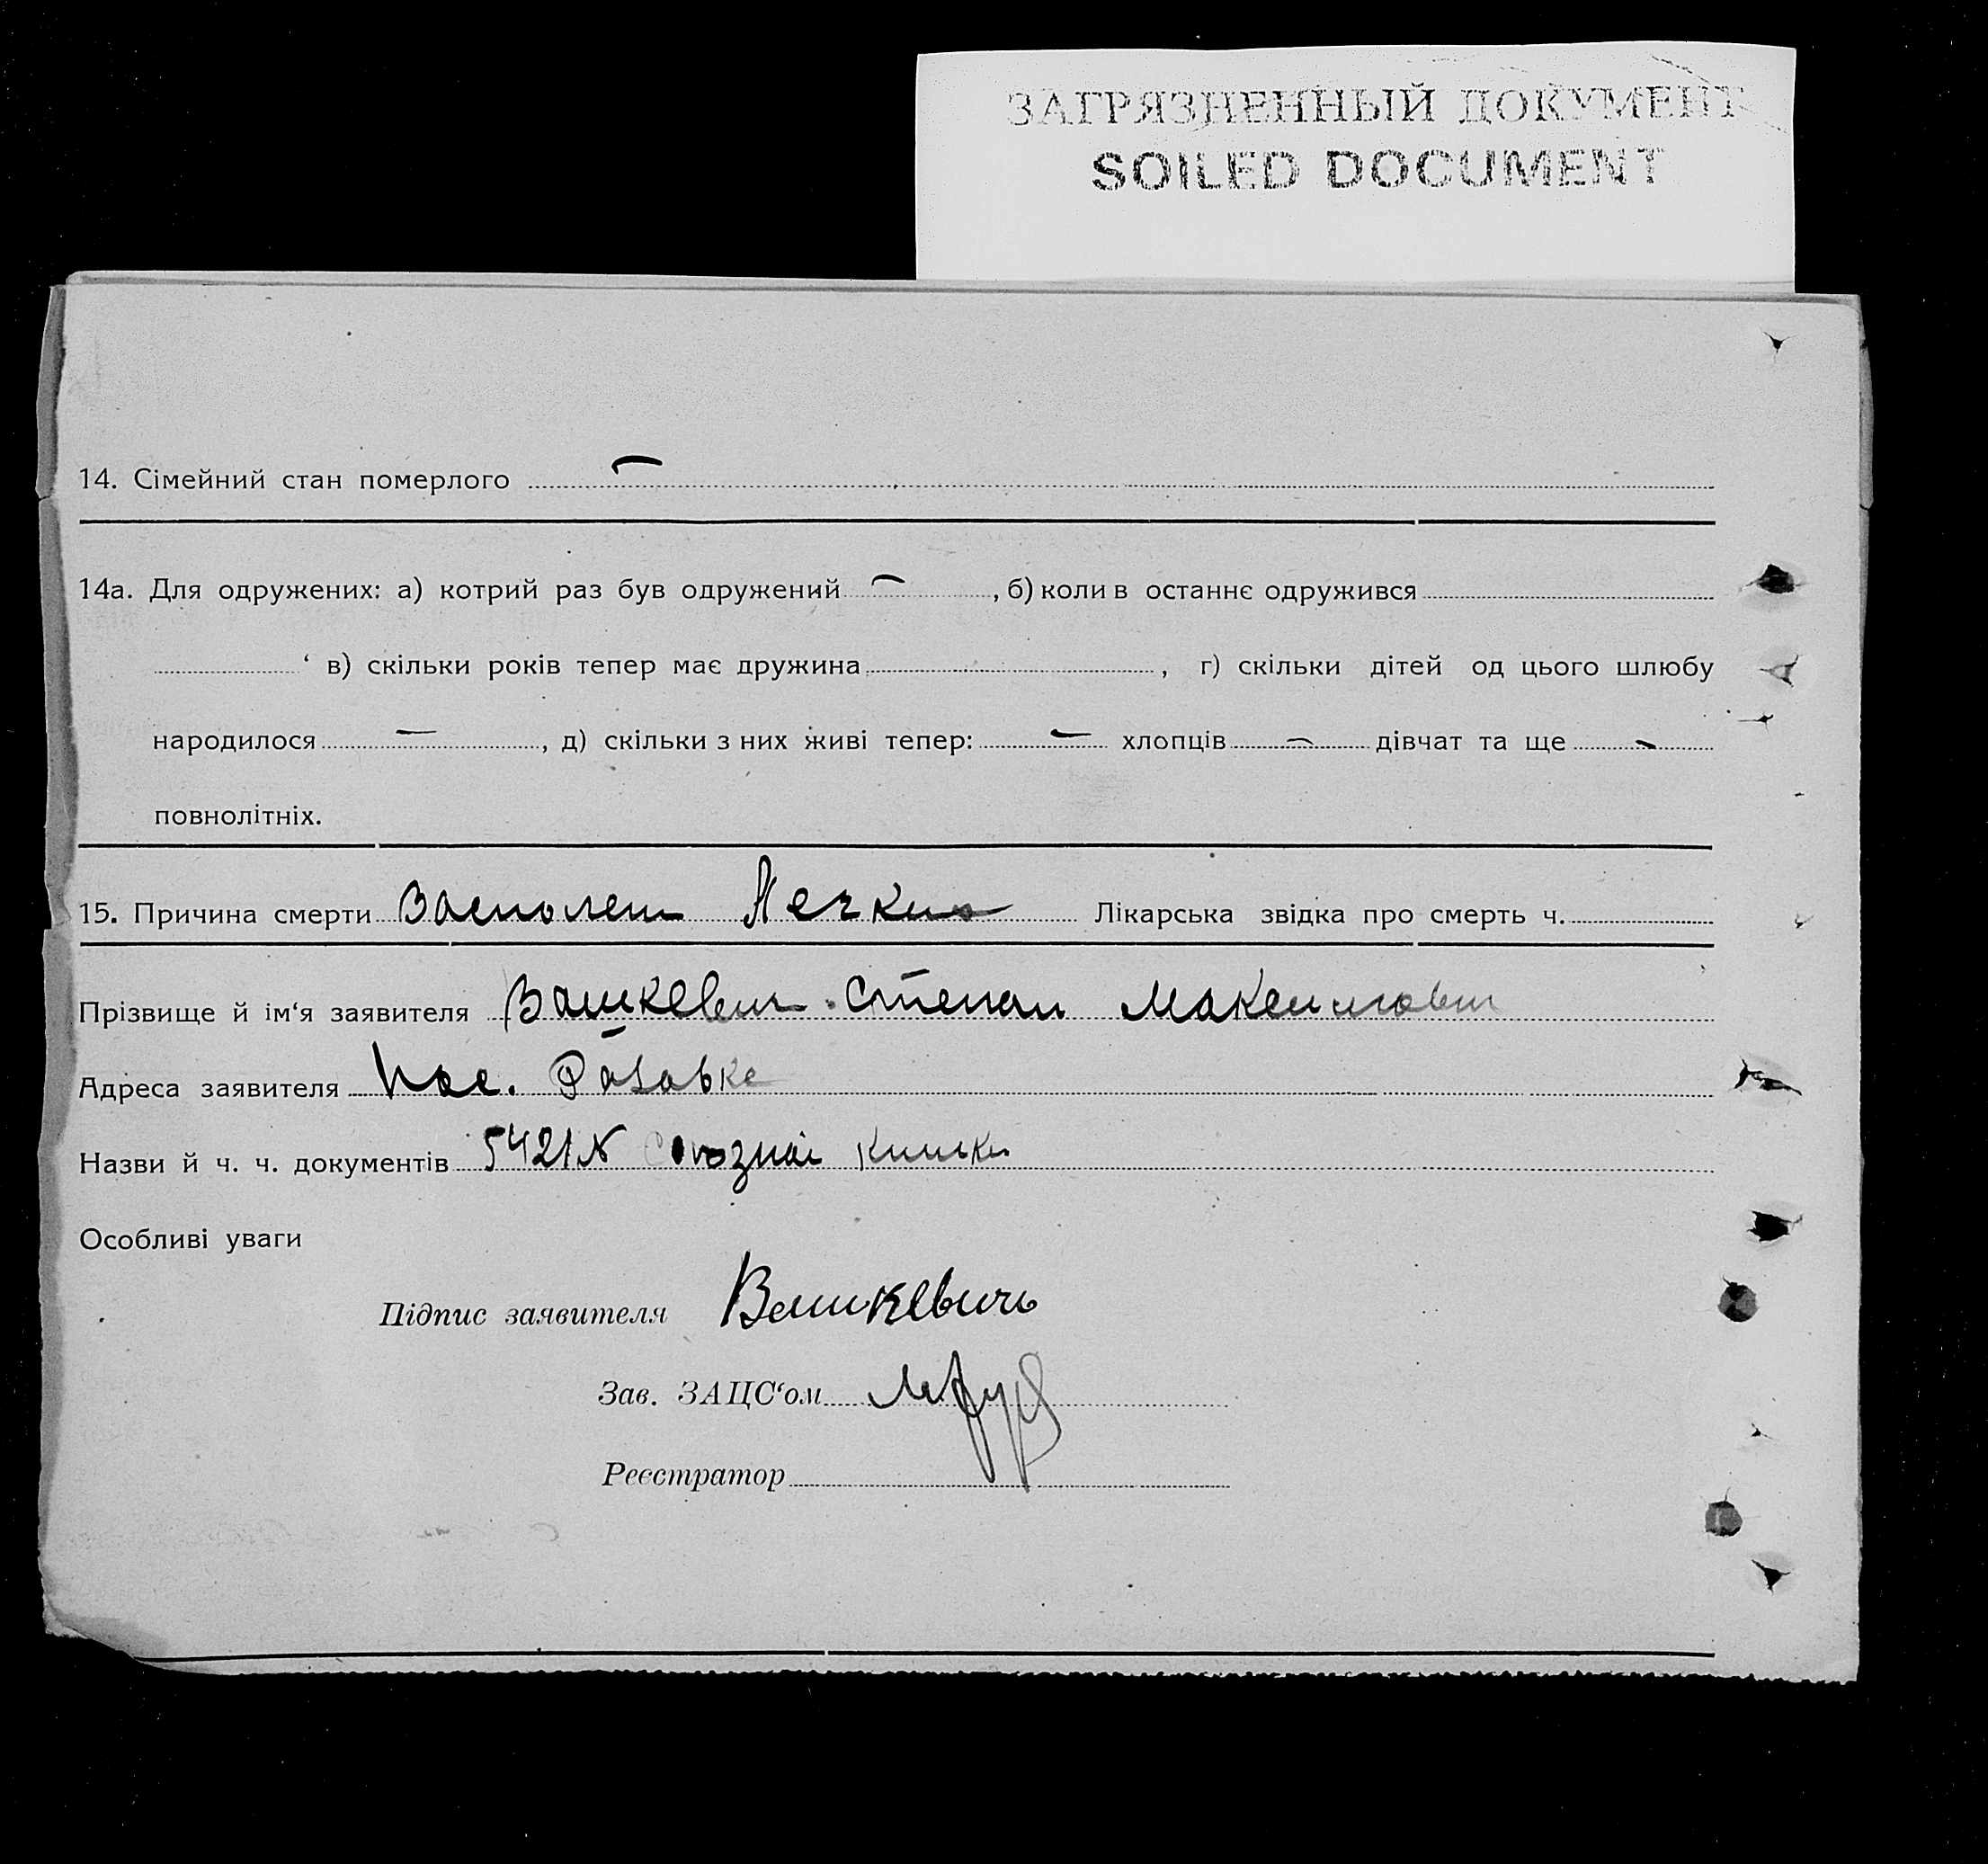 ЗАГРЯЗНЕННЫЙ ДОКУМЕНТ
SOILED DOCUMENT
14. Сімейний стан померлого —
14а. Для одружених: а) котрий раз був одружений —, б) коли в останнє одружився
‘ в) скільки років тепер має дружина, г) скільки дітей од цього шлюбу
народилося —, д) скільки з них живі тепер: — хлопців — дівчат та ще —
повнолітніх.
15. Причина смерти Лікарська звідка про смерть ч.
Прізвище й ім‘я заявителя Вашкевич Степан Максимович
Адреса заявителя Пос.
Назви й ч. ч. документів 5421 N союзной книжки
Особливі уваги
Підпис заявителя Вашкевичь
Зав. ЗАЦС‘ом
Реєстратор